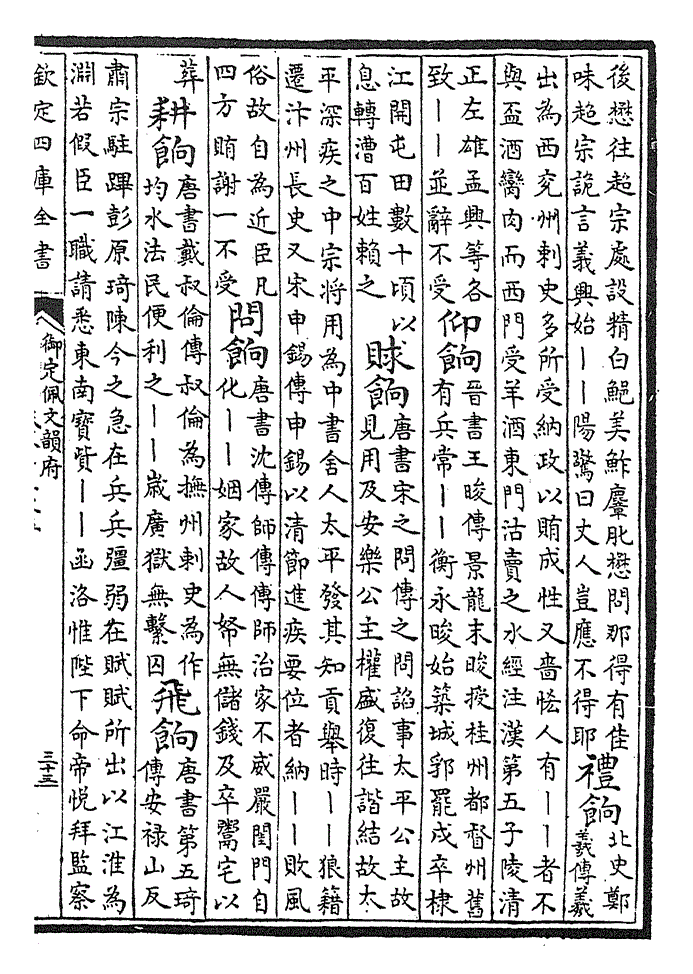 後懋往超宗處設精白鮑美鮓麞肶懋問那得有佳
味超宗詭言義興始——陽驚曰丈人豈應不得耶
禮餉
北史鄭
羲傳羲
出為西兖州刺史多所受納政以賄成性又嗇悋人有——者不
與盃酒臠肉而西門受羊酒東門沽賣之水經注漢第五子陵清
正左雄孟興等各
致——並辭不受
仰餉
晉書王晙傳景龍末晙授桂州都督州舊
有兵常——衡永晙始築城郭罷戍卒棣
江開屯田數十頃以
息轉漕百姓賴之
賕餉
唐書宋之問傳之問諂事太平公主故
見用及安樂公主權盛復往諧結故太
平深疾之中宗將用為中書舍人太平發其知貢舉時——狼籍
遷汴州長史又宋申錫傳申錫以清節進疾要位者納——敗風
俗故自為近臣凡
四方賄謝一不受
問餉
唐書沈傳師傳傳師治家不威嚴閨門自
化——姻家故人帑無儲錢及卒鬻宅以
葬
耕餉
唐書戴叔倫傳叔倫為撫州刺史為作
均水法民便利之——歲廣獄無繫囚
飛餉
唐書第五琦
傳安禄山反
肅宗駐蹕彭原琦陳今之急在兵兵彊弱在賦賦所出以江淮為
淵若假臣一職請悉東南寶貲——函洛惟陛下命帝悅拜監察
欽定四庫全書
御定佩文韻府
三十三